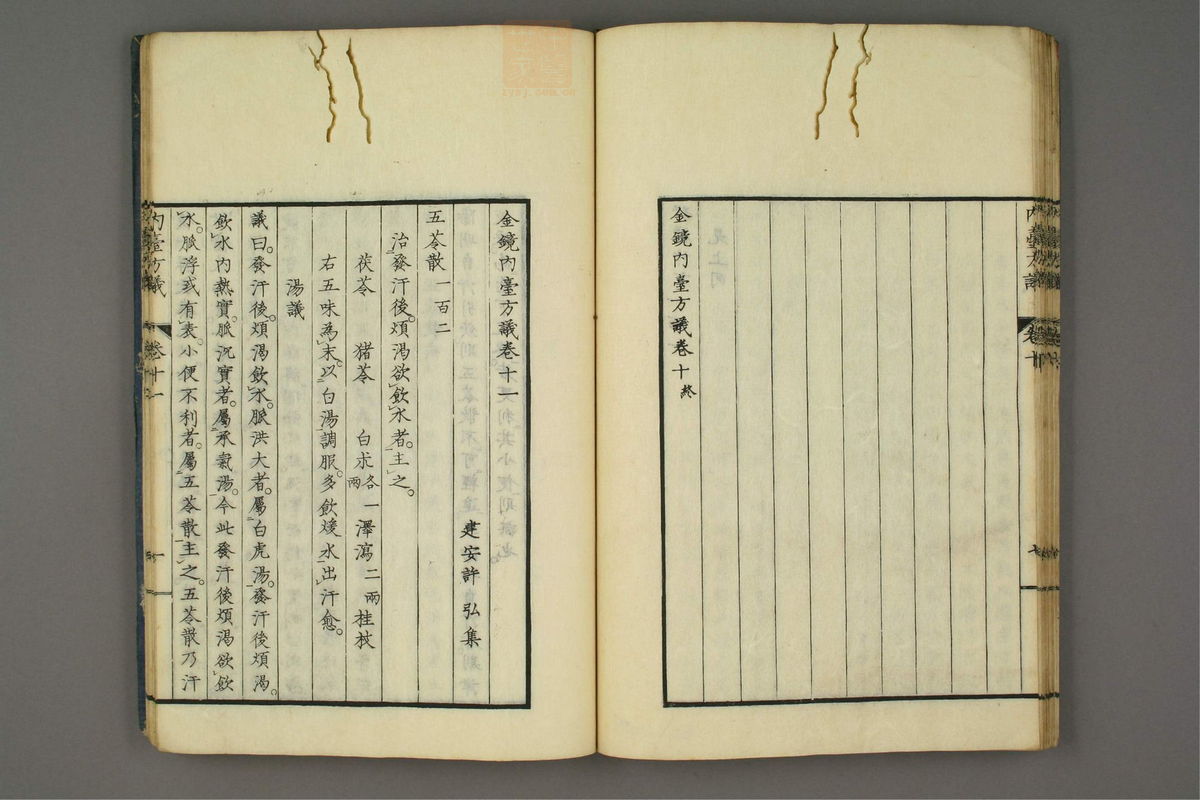 金鏡內臺方議卷十終
內臺方議
卷十
金鏡內臺方議卷十一
建安許弘集
五苓散一百二
治發汗後。煩渴欲飲水者。主之。
茯苓 猪苓 白朮各一兩 澤瀉二兩 桂枝
右五味為末。以白湯調服。多飲煖水出汗愈。
湯議
議曰。發汗後。煩渴飲水。脈洪大者。屬白虎湯。發汗後煩渴。
飲水內熱實。脈沉實者。屬承氣湯。今此發汗後煩渴欲飲
水。脈浮或有表。小便不利者。屬五苓散主之。五苓散乃汗
內臺方議
卷十一
一